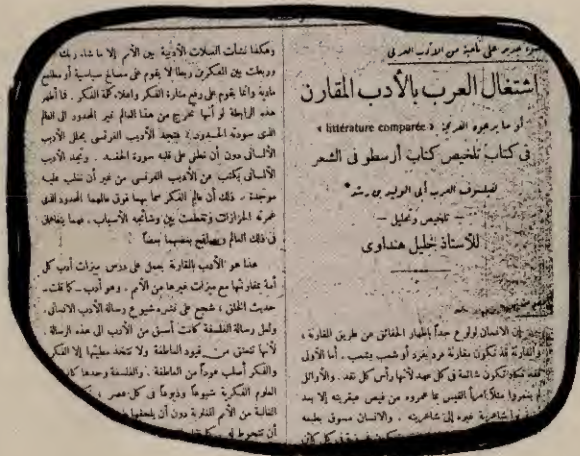 ضوء جديد على ناحية من الأدب العربى
اشتغال العرب بالأدب المقارن
أو ما يدعوه الفرنجة « littérature comparée »
فى كتاب تلخيص كتاب أرسطو فى الشعر
لفيلسوف العرب أبى الوليد بن رشد
— تلخيص وتحليل —
للأستاذ خليل هنداوى
إن الانسان لولوع جداً باظهار الحقائق عن طريق المقارنة ،
والمقارنة قد تكون مقارنة فرد بفرد أو شعب بشعب . أما الأولى
فقد تكون شائمة فى كل عهد لأنها رأس كل نقد . والأوائل
لم يشعروا مثلاً امرأ القيس بما عمروه من قيص عبقريته إلا بعد
شاعرية غيره إلى شاعريته . والانسان مسوق بطبعه
وهكذا نشأت الصلات الأدبية بين الأمم إلا ما شاء ربك
وربطت بين المفكرين ربطا لا يقوم على مصالح سياسية أو مطامع
مادية وانما يقوم على رفع منارة الفكر واعلاء كلمة الفكر . فما أطهر
هذه الرابطة لو أنها تخرج من هذا العالم غير المحدود الى العالم
الذى سودته الحدود ! فتجد الأديب الفرنسى يحلل الأدب
الألمانى دون أن تطغى على قلبه سورة الحقد . وتجد الأديب
الألمانى يكتب عن الأديب الفرنسى من غير أن تغلب عليه
موجدة . ذلك أن عالم الفكر سما بهما فوق عالمهما المحدود الذى
غمرته الحزازات وتقطعت بين وشائجه الأسباب . فهما يتفاهمان
فى ذلك العالم ويصافح بعضهما بعضاً
هذا هو الأدب بالمقارنة يعمل على درس ميزات أدب كل
أمة بمقارنتها مع ميزات غيرها من الأمم . وهو أدب — كما قلت —
حديث الخلق ، شجع على نشره شيوع رسالة الأدب الانسانى .
ولعل رسالة الفلسفة كانت أسبق من الأدب الى هذه الرسالة .
لأنها تنعتق من قيود العاطفة ولا تتخذ مطيتها إلا الفكر
والفكر أصلب عوداً من العاطفة . والفلسفة وحدها كانت
العلوم الفكرية شيوعاً وذيوعاً فى كل عصر ،